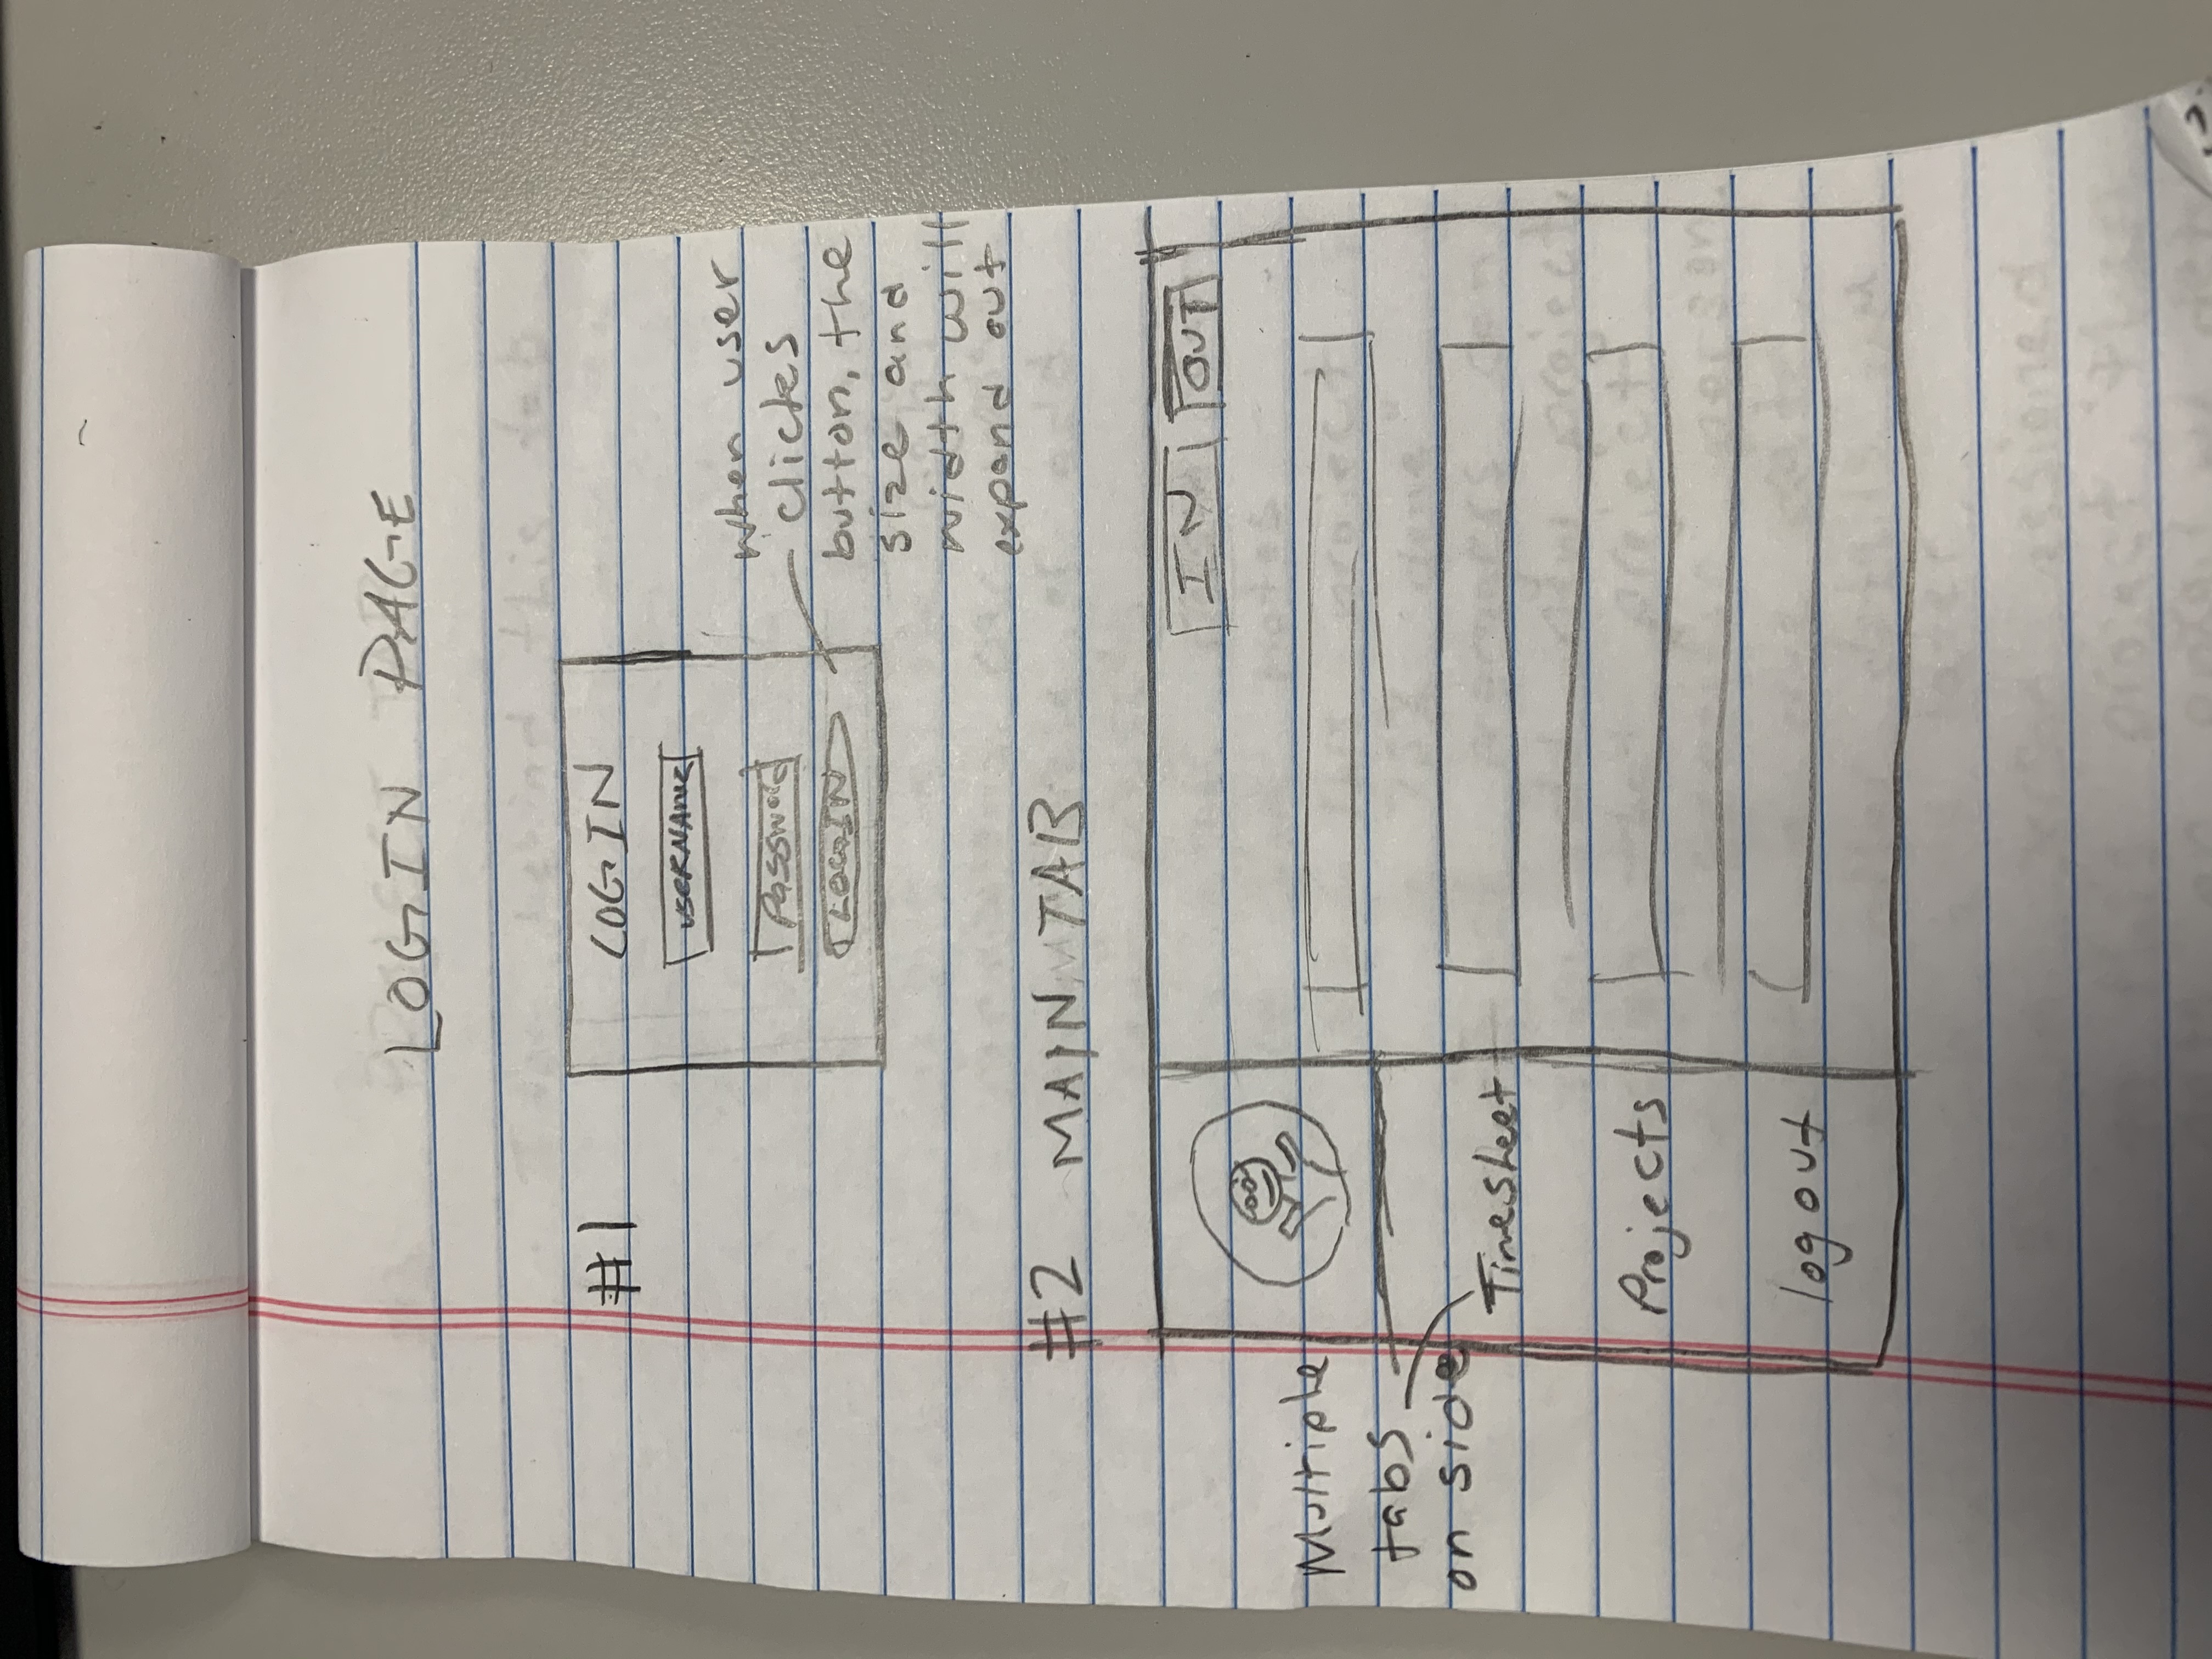 LOGIN PAGE
#1
LOGIN
USERNAME
Password
LOGIN
when user
clicks
button, the
size and
width will
expand out
#2 MAIN TAB
IN OUT
Multiple
tabs
on side
Timesheet
Projects
logout